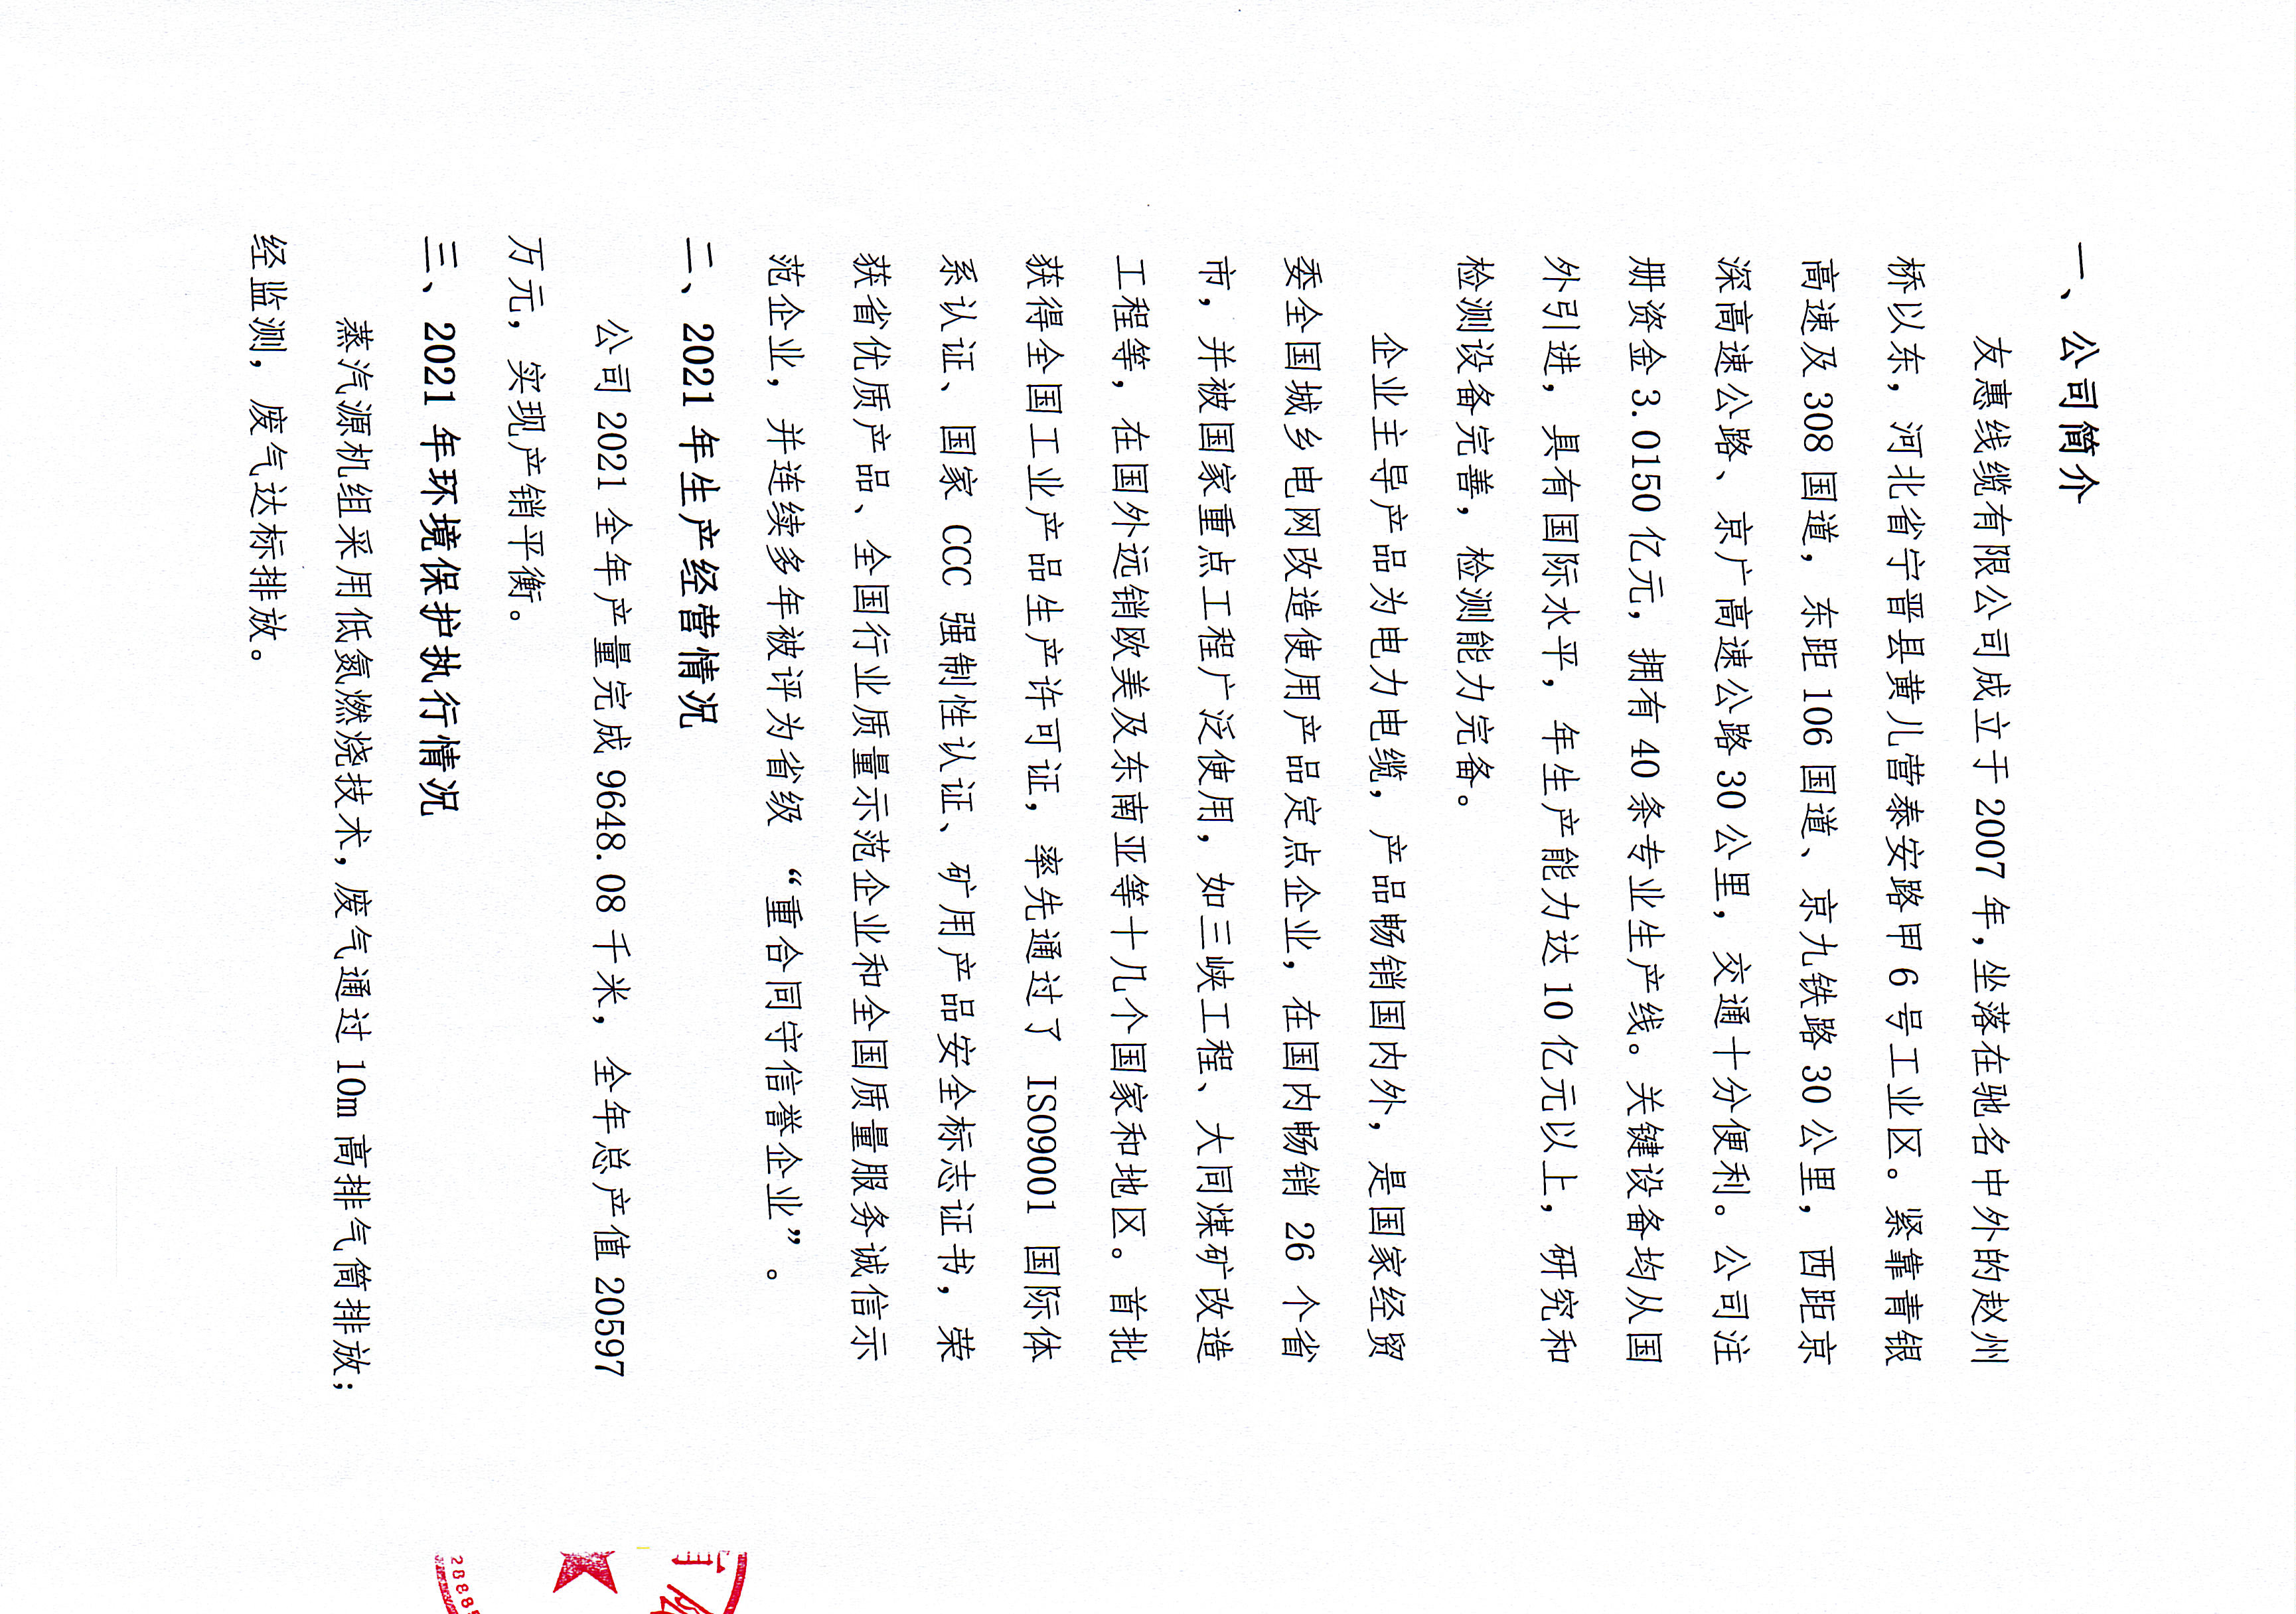 一、公司简介
友惠线缆有限公司成立于 2007 年,坐落在驰名中外的赵州
桥以东，河北省宁晋县黄儿营泰安路甲 6 号工业区。紧靠青银
高速及 308 国道，东距 106 国道、京九铁路 30 公里，西距京
深高速公路、京广高速公路 30 公里，交通十分便利。公司注
册资金 3.0150 亿元，拥有 40 条专业生产线。关键设备均从国
外引进，具有国际水平，年生产能力达 10 亿元以上，研究和
检测设备完善，检测能力完备。
企业主导产品为电力电缆，产品畅销国内外，是国家经贸
委全国城乡电网改造使用产品定点企业，在国内畅销 26 个省
市，并被国家重点工程广泛使用，如三峡工程、大同煤矿改造
工程等，在国外远销欧美及东南亚等十几个国家和地区。首批
获得全国工业产品生产许可证，率先通过了 ISO9001 国际体
系认证、国家 CCC 强制性认证、矿用产品安全标志证书，荣
获省优质产品、全国行业质量示范企业和全国质量服务诚信示
范企业，并连续多年被评为省级 “重合同守信誉企业” 。
二、2021 年生产经营情况
公司 2021 全年产量完成 9648.08 千米，全年总产值 20597
万元，实现产销平衡。
三、2021 年环境保护执行情况
蒸汽源机组采用低氮燃烧技术,废气通过 10m 高排气筒排放;
经监测，废气达标排放。